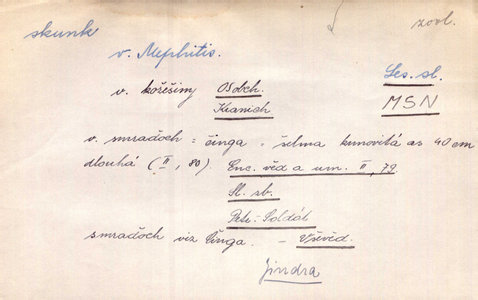 skunk zool.
v. Mephitis.
Les. sl.
v. kožešiny Osobch.
Kranich MSN
v. smraďoch = činga - šelma kunovitá as 40 cm
dlouhá (II, 80). Enc. věd a um. II, 79.
Sl. sb.
Petr: Soldát
smraďoch viz Činga. - Vševěd.
Jindra